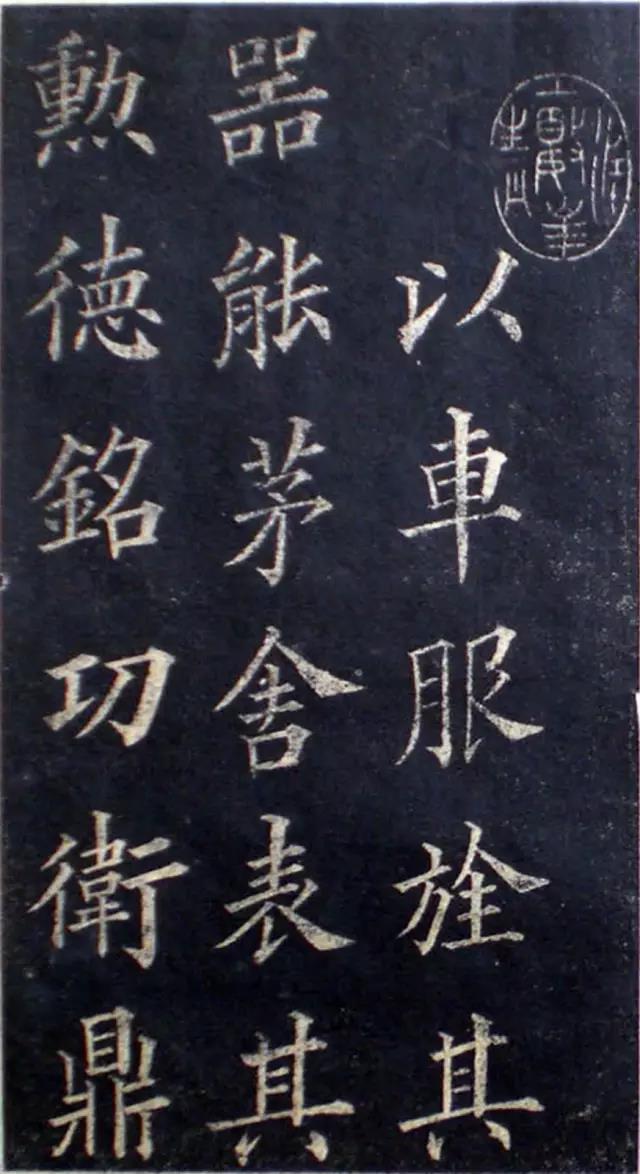 以車服旌其
器能茅舍表其
勲徳銘功衛鼎